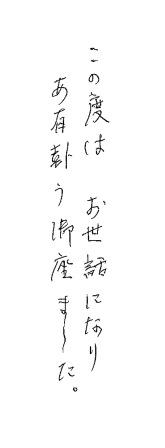 この度は お世話になり
あ有難う御座ました。